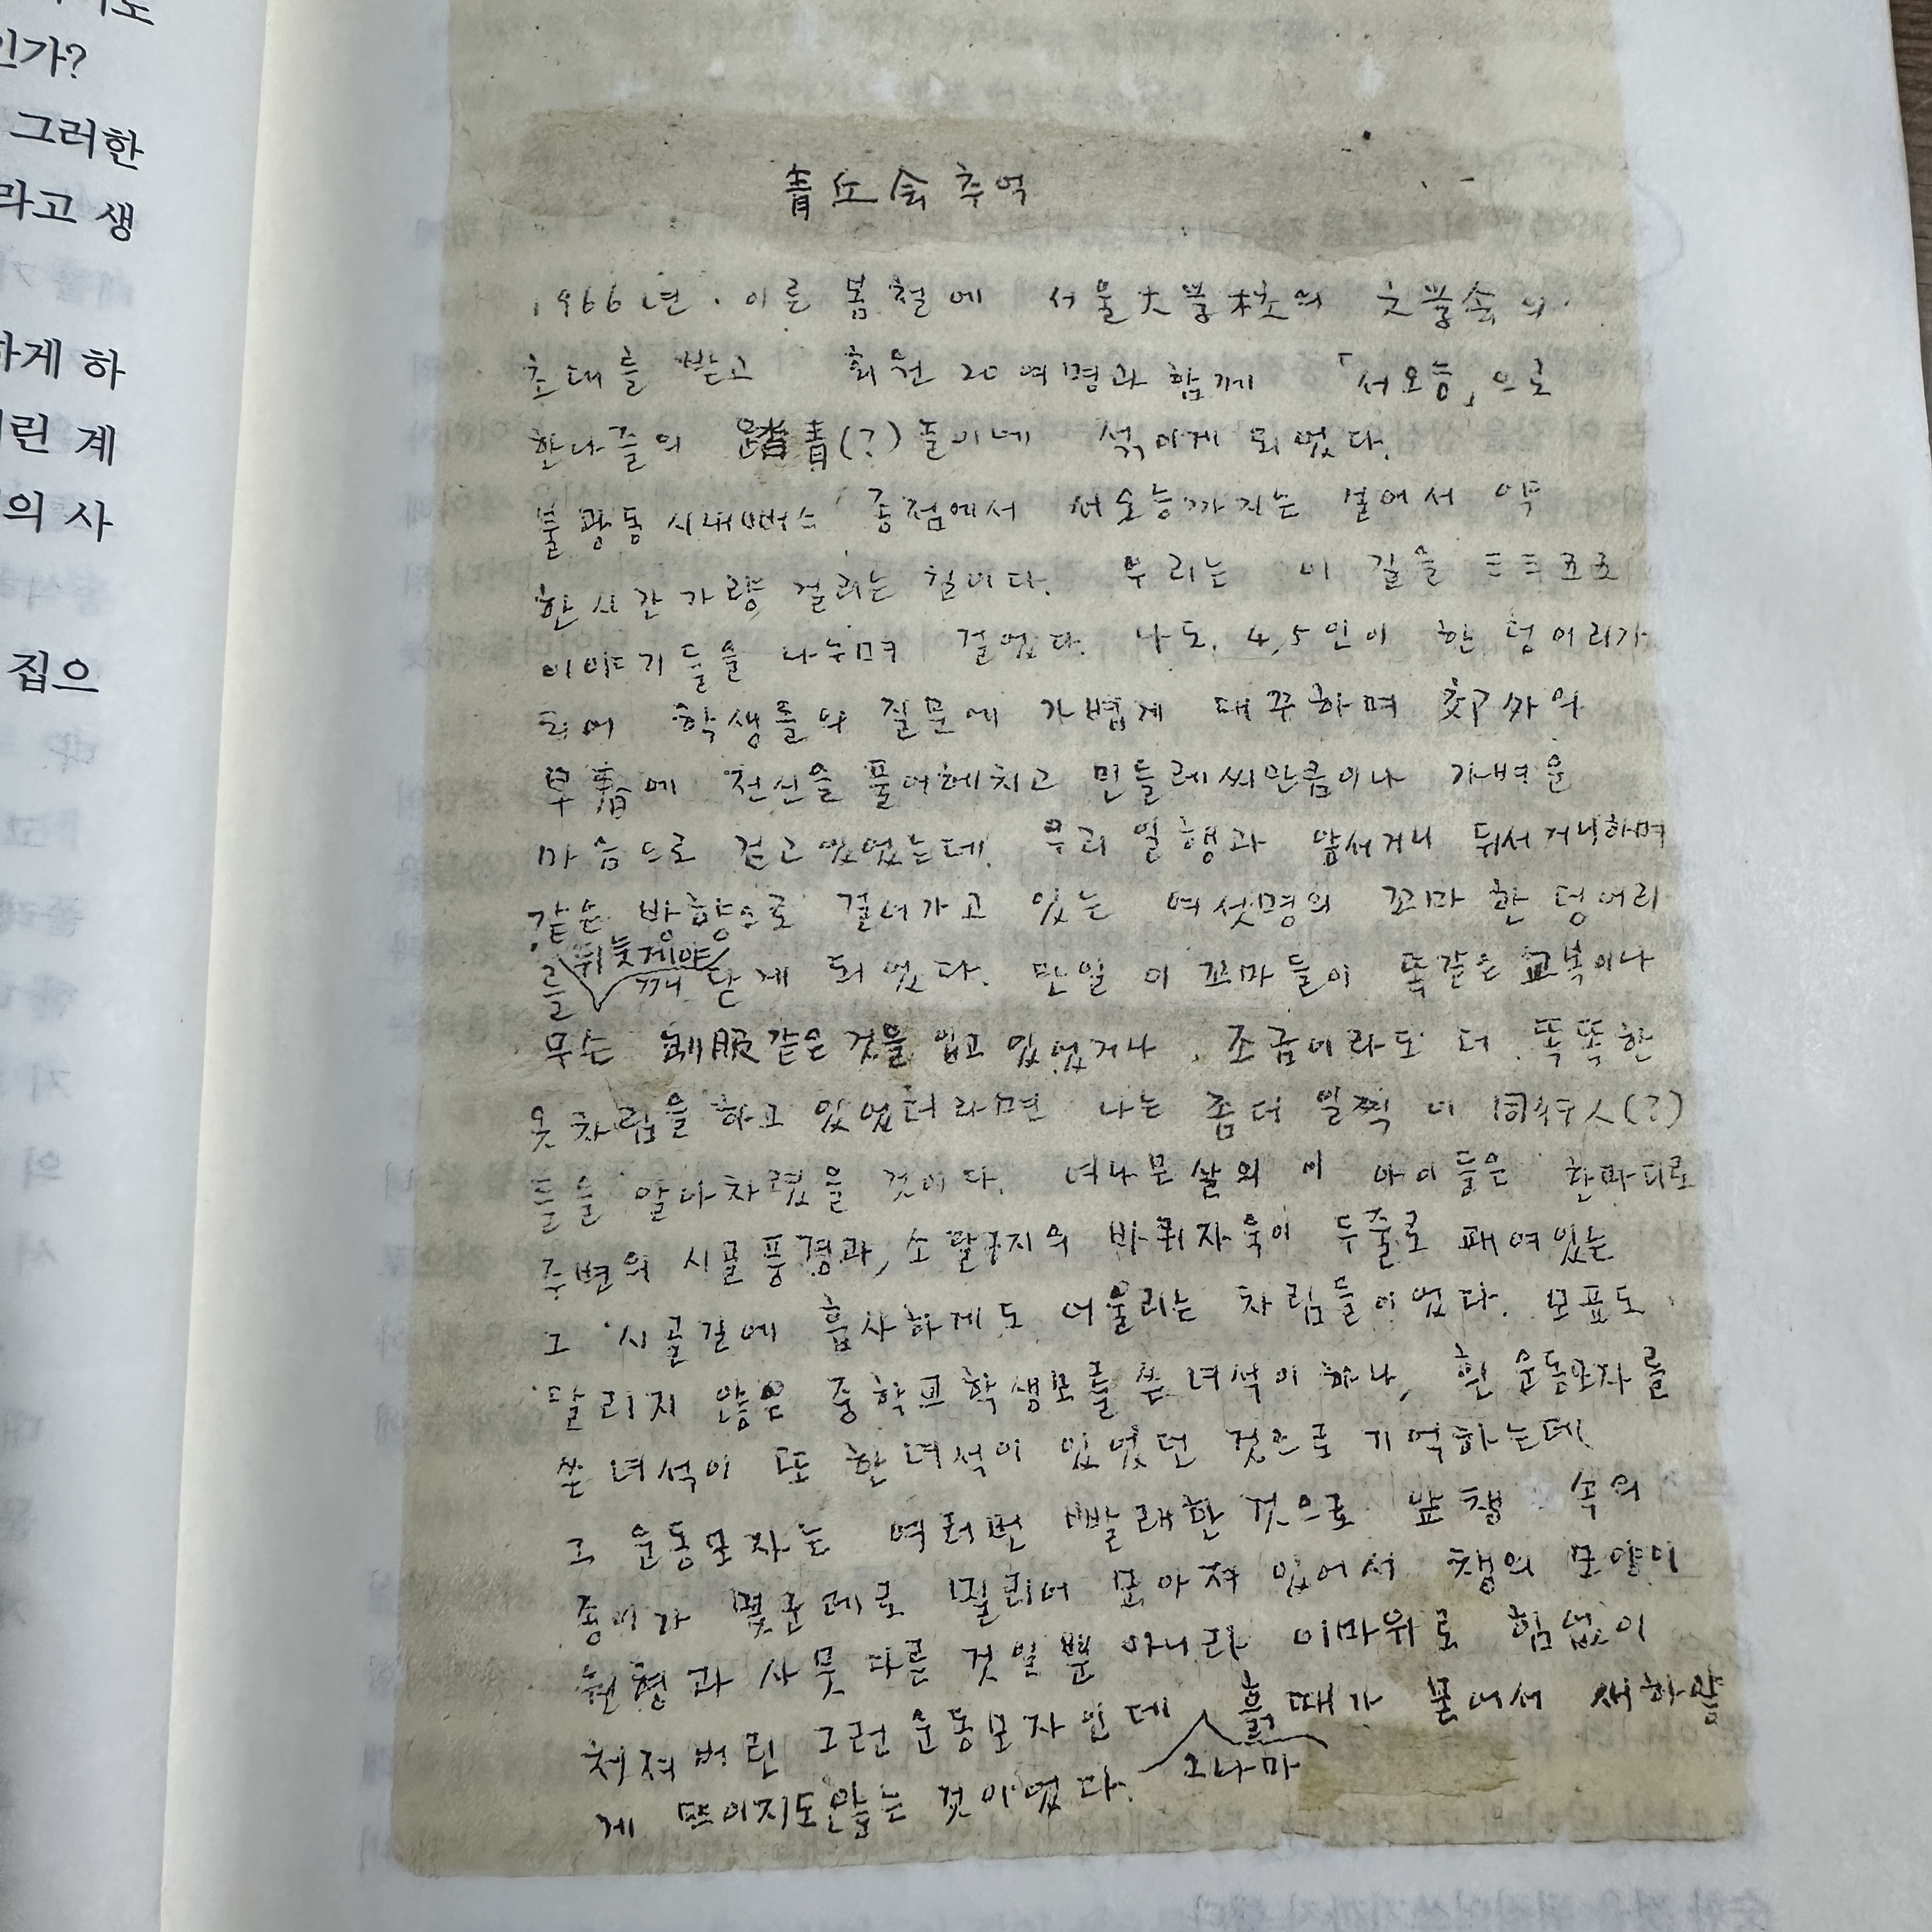 인가?
그러한
라고 생
하게 하
린 계
의 사
집으
青丘会 추억
1966년. 이른 봄철에 서울大学校의 文学会의
초대를 받고 회원 20여명과 함께 「서오릉」으로
한나절의 踏青(?)놀이에 섞이게 되었다.
불광동 시내뻐스 종점에서 서오릉까지는 걸어서 약
한시간 가량 걸리는 길이다. 우리는 이 길을 三三五五
이야기들을 나누며 걸었다. 나도, 4,5인이 한 덩어리가
되어 학생들의 질문에 가볍게 대꾸하며 郊外의
早春에 전신을 풀어헤치고 민들레씨만큼이나 가벼운
마음으로 걷고 있었는데, 우리 일행과 앞서거니 뒤서거니하며
같은 방향으로 걸어가고 있는 여섯명의 꼬마 한 덩어리
를 뒤늦게야 깨닫게 되었다. 만일 이 꼬마들이 똑같은 교복이나
무슨 制服같은 것을 입고 있었거나, 조금이라도 더 똑똑한
옷차림을 하고 있었더라면 나는 좀더 일찍 이 同行人(?)
들을 알아차렸을 것이다. 여나문살의 이 아이들은 한마디로
주변의 시골풍경과, 소달구지의 바퀴자욱이 두줄로 패여있는
그 시골길에 흡사하게도 어울리는 차림들이었다. 모표도
달리지 않은 중학교학생모를 쓴 녀석이 하나, 흰 운동모자를
쓴 녀석이 또 한녀석이 있었던 것으로 기억하는데
그 운동모자는 여러번 빨래한 것으로 앞챙 속의
종이가 몇군데로 밀리어 모아져 있어서 챙의 모양이
원형과 사뭇 다를 것일뿐 아니라 이마위로 힘없이
처져버린 그런 운동모자인데 그나마 흙때가 묻어서 새하얗
게 뜨이지도않는 것이었다.